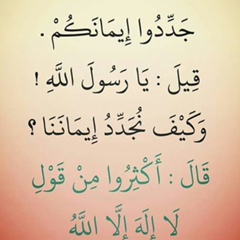 جَدِّدُوا إِيمَانَكُمْ .
قِيلَ : يَا رَسُولَ اللَّهِ !
وَكَيْفَ نُجَدِّدُ إِيمَانَنَا ؟
قَالَ : أَكْثِرُوا مِنْ قَوْلِ
لَا إِلَهَ إِلَّا اللَّهُ